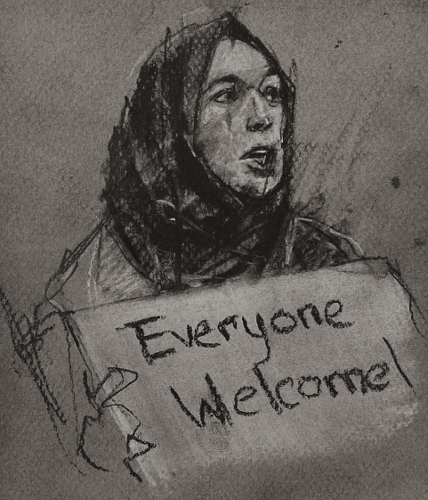 Everyone
Welcome!